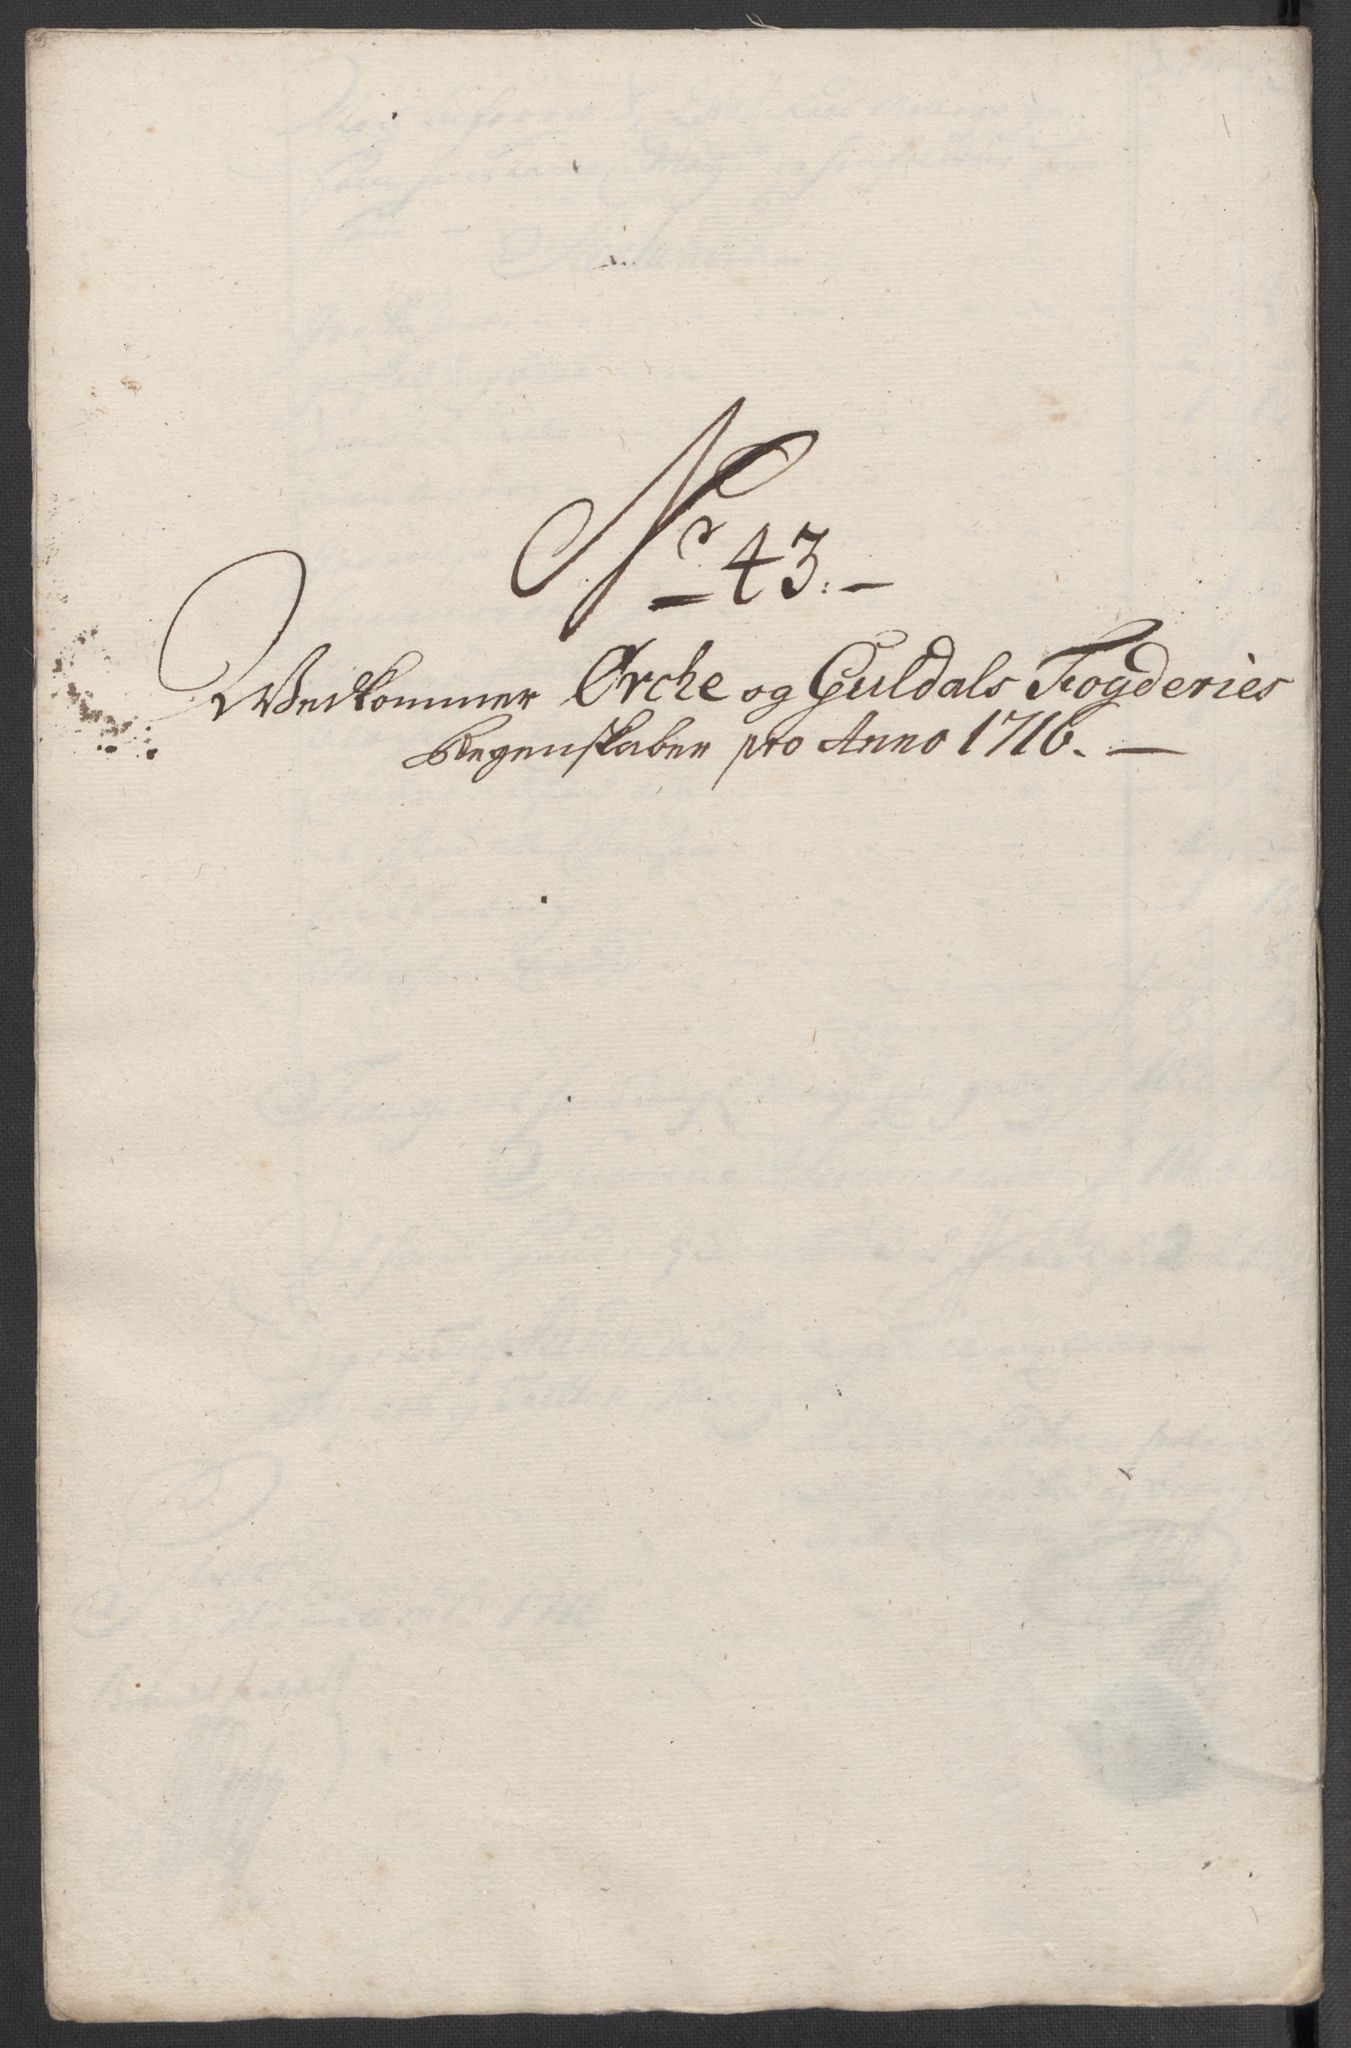 Nr 43.
Vedkommer Ørche og Guldals Fogderies
Regenskaber pro Anno 1716.